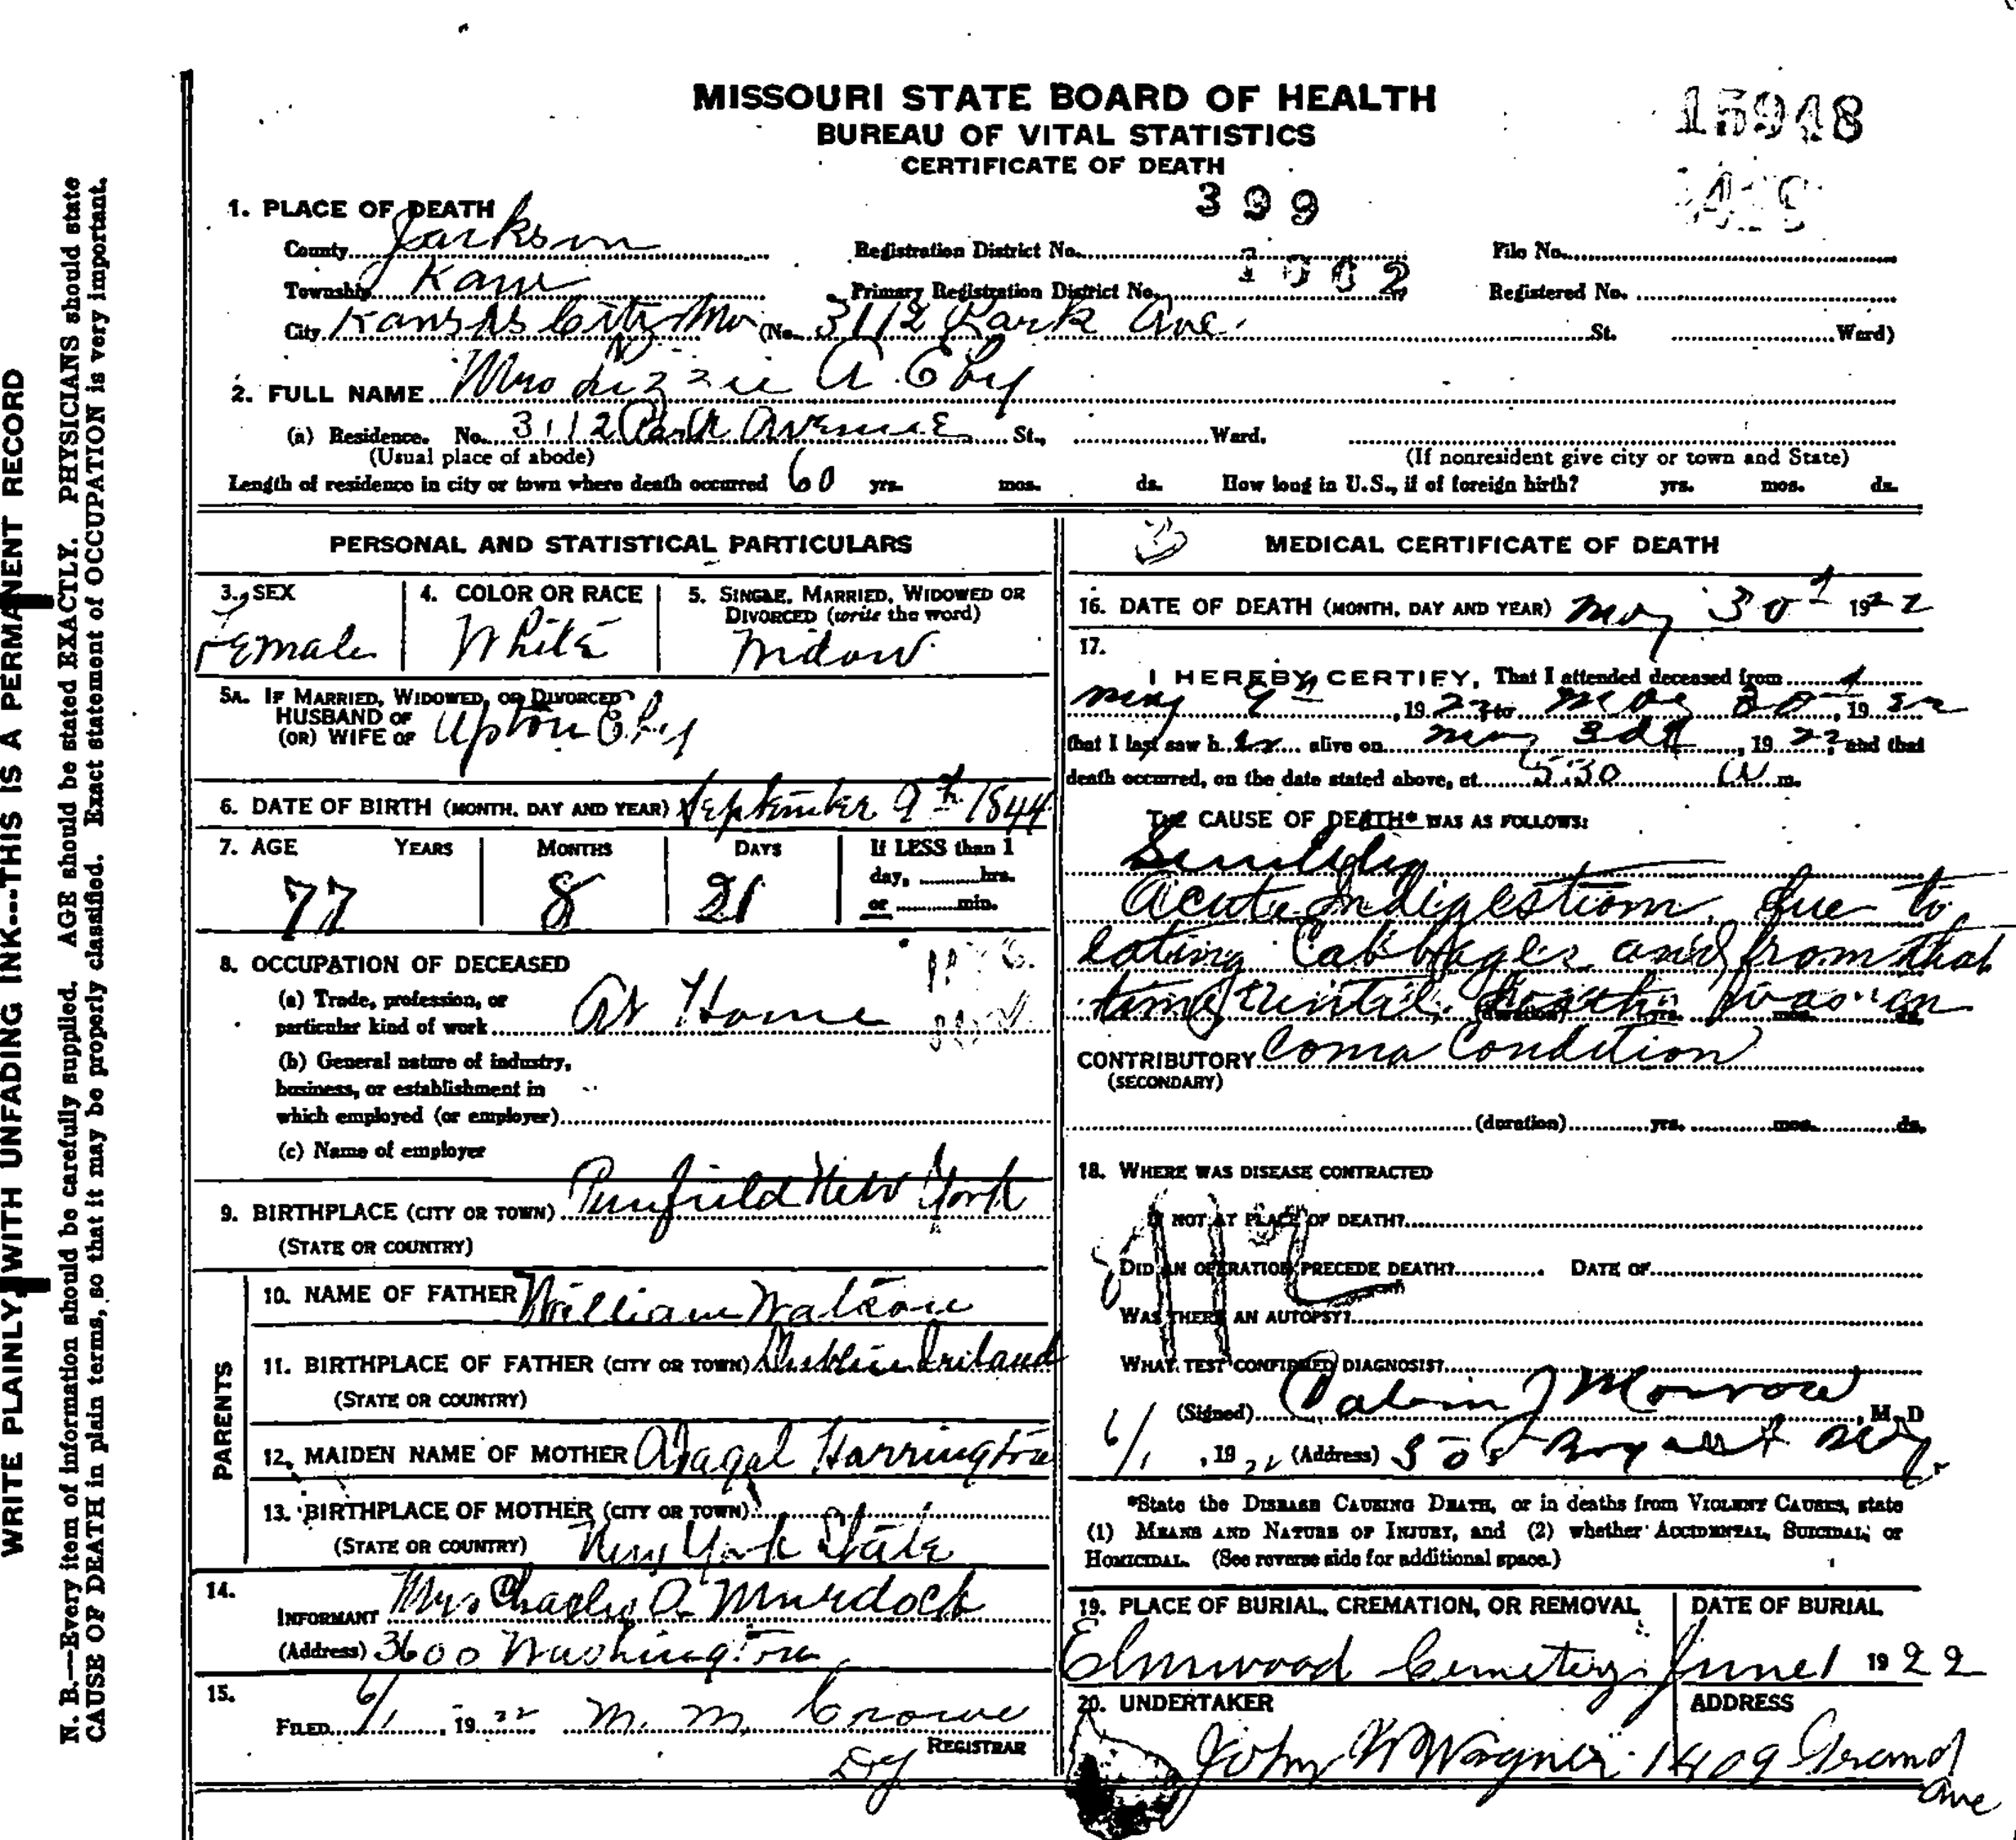 MISSOURI STATE BOARD OF HEALTH
BUREAU OF VITAL STATISTICS
CERTIFICATE OF DEATH
15948
399
1. PLACE OF DEATH
County Jackson Registration District No. File No.
Township Kaw Primary Registration District No. 1002 Registered No.
City Kansas City Mo (No. 3112 Park Ave. St. Ward)
2. FULL NAME Mrs Lizzie A. Eby
(a) Residence. No. 3112 Park Avenue St., Ward.
(Usual place of abode) (If nonresident give city or town and State)
Length of residence in city or town where death occurred 60 yrs. mos. ds. How long in U.S., if of foreign birth? yrs. mos. ds.
PERSONAL AND STATISTICAL PARTICULARS
3. SEX
Female
4. COLOR OR RACE
White
5. SINGLE, MARRIED, WIDOWED OR
DIVORCED (write the word)
Widow
5A. IF MARRIED, WIDOWED, OR DIVORCED
HUSBAND OF
(OR) WIFE OF Upton Eby
6. DATE OF BIRTH (MONTH, DAY AND YEAR) September 9th 1844
7. AGE YEARS MONTHS DAYS If LESS than 1
day, hrs.
77 8 21 or min.
8. OCCUPATION OF DECEASED
(a) Trade, profession, or
particular kind of work At Home
(b) General nature of industry,
business, or establishment in
which employed (or employer)
(c) Name of employer
9. BIRTHPLACE (CITY OR TOWN) Penfield New York
(STATE OR COUNTRY)
PARENTS
10. NAME OF FATHER William Watson
11. BIRTHPLACE OF FATHER (CITY OR TOWN) Dublin Ireland
(STATE OR COUNTRY)
12. MAIDEN NAME OF MOTHER Abagal Harrington
13. BIRTHPLACE OF MOTHER (CITY OR TOWN)
(STATE OR COUNTRY) New York State
14.
INFORMANT Mrs Charles A. Murdock
(Address) 3600 Washington
15.
FILED 6/1, 1922 M. M. Crowe
REGISTRAR
Dy
MEDICAL CERTIFICATE OF DEATH
16. DATE OF DEATH (MONTH, DAY AND YEAR) May 30th 1922
17.
I HEREBY CERTIFY, That I attended deceased from
May 9th, 1922, to May 30th, 1922
that I last saw her alive on May 30th, 1922, and that
death occurred, on the date stated above, at 5:30 A m.
THE CAUSE OF DEATH* WAS AS FOLLOWS:
Acute Indigestion. Due to
eating Cabbages and from that
time until death was in
(duration) yrs. mos. ds.
CONTRIBUTORY Coma Condition
(SECONDARY)
(duration) yrs. mos. ds.
18. WHERE WAS DISEASE CONTRACTED
IF NOT AT PLACE OF DEATH?
DID AN OPERATION PRECEDE DEATH? DATE OF
WAS THERE AN AUTOPSY?
WHAT TEST CONFIRMED DIAGNOSIS?
(Signed) J Monroe, M.D
6/1, 1922 (Address)
*State the DISEASE CAUSING DEATH, or in deaths from VIOLENT CAUSES, state
(1) MEANS AND NATURE OF INJURY, and (2) whether ACCIDENTAL, SUICIDAL, or
HOMICIDAL. (See reverse side for additional space.)
19. PLACE OF BURIAL, CREMATION, OR REMOVAL DATE OF BURIAL
Elmwood Cemetery June 1 1922
20. UNDERTAKER ADDRESS
John W Wagner 1409 Grand
Ave
WRITE PLAINLY, WITH UNFADING INK---THIS IS A PERMANENT RECORD
N. B.—Every item of information should be carefully supplied. AGE should be stated EXACTLY. PHYSICIANS should state
CAUSE OF DEATH in plain terms, so that it may be properly classified. Exact statement of OCCUPATION is very important.